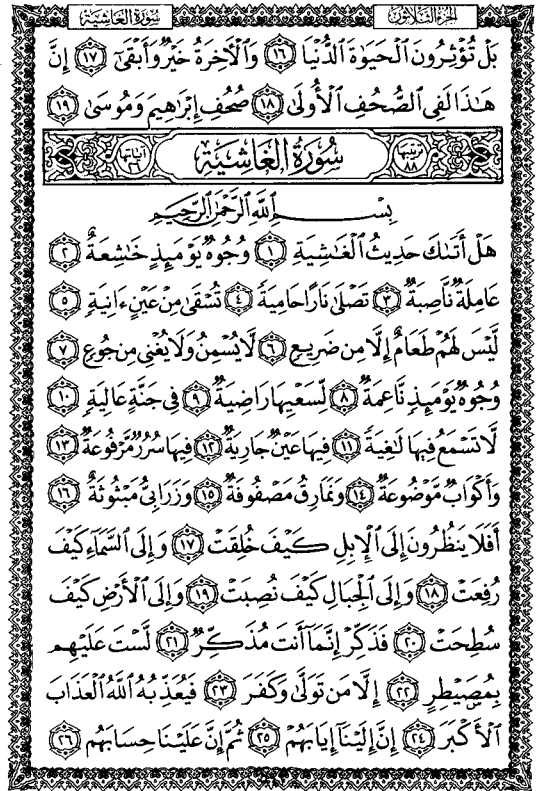 سُورَةُ الغَاشِيَةِ الجُزءُ الثَّلَاثُونَ
بَلْ تُؤْثِرُونَ ٱلْحَيَوٰةَ ٱلدُّنْيَا ١٦ وَٱلْأَخِرَةُ خَيْرٌ وَأَبْقَىٰٓ ١٧ إِنَّ
هَٰذَا لَفِى ٱلصُّحُفِ ٱلْأُولَىٰ ١٨ صُحُفِ إِبْرَٰهِيمَ وَمُوسَىٰ ١٩
ترتيبها ٨٨ سُورَةُ الغَاشِيَةِ آياتها ٢٦
بِسْمِ ٱللَّهِ ٱلرَّحْمَٰنِ ٱلرَّحِيمِ
هَلْ أَتَىٰكَ حَدِيثُ ٱلْغَٰشِيَةِ ١ وُجُوهٌ يَوْمَئِذٍ خَٰشِعَةٌ ٢
عَامِلَةٌ نَّاصِبَةٌ ٣ تَصْلَىٰ نَارًا حَامِيَةً ٤ تُسْقَىٰ مِنْ عَيْنٍ ءَانِيَةٍ ٥
لَّيْسَ لَهُمْ طَعَامٌ إِلَّا مِن ضَرِيعٍ ٦ لَّا يُسْمِنُ وَلَا يُغْنِى مِن جُوعٍ ٧
وُجُوهٌ يَوْمَئِذٍ نَّاعِمَةٌ ٨ لِّسَعْيِهَا رَاضِيَةٌ ٩ فِى جَنَّةٍ عَالِيَةٍ ١٠
لَّا تَسْمَعُ فِيهَا لَٰغِيَةً ١١ فِيهَا عَيْنٌ جَارِيَةٌ ١٢ فِيهَا سُرُرٌ مَّرْفُوعَةٌ ١٣
وَأَكْوَابٌ مَّوْضُوعَةٌ ١٤ وَنَمَارِقُ مَصْفُوفَةٌ ١٥ وَزَرَابِىُّ مَبْثُوثَةٌ ١٦
أَفَلَا يَنظُرُونَ إِلَى ٱلْإِبِلِ كَيْفَ خُلِقَتْ ١٧ وَإِلَى ٱلسَّمَآءِ كَيْفَ
رُفِعَتْ ١٨ وَإِلَى ٱلْجِبَالِ كَيْفَ نُصِبَتْ ١٩ وَإِلَى ٱلْأَرْضِ كَيْفَ
سُطِحَتْ ٢٠ فَذَكِّرْ إِنَّمَآ أَنتَ مُذَكِّرٌ ٢١ لَّسْتَ عَلَيْهِم
بِمُصَيْطِرٍ ٢٢ إِلَّا مَن تَوَلَّىٰ وَكَفَرَ ٢٣ فَيُعَذِّبُهُ ٱللَّهُ ٱلْعَذَابَ
ٱلْأَكْبَرَ ٢٤ إِنَّ إِلَيْنَآ إِيَابَهُمْ ٢٥ ثُمَّ إِنَّ عَلَيْنَا حِسَابَهُم ٢٦